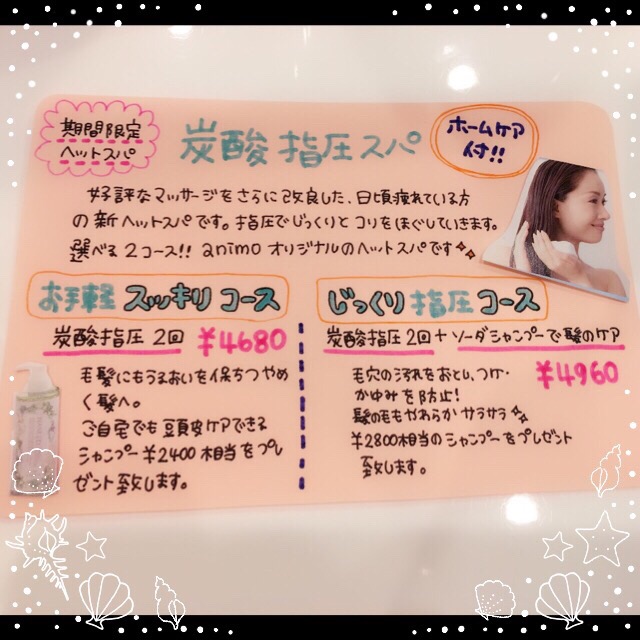 期間限定
ヘットスパ
炭酸指圧スパ
ホームケア
付!!
好評なマッサージをさらに改良した、日頃疲れている方
の新ヘットスパです。指圧でじっくりとコリをほぐしていきます。
選べる2コース!! animoオリジナルのヘットスパです
お手軽スッキリコース
炭酸指圧2回 ¥4680
毛髪にもうるおいを保ちつやめ
く髪へ。
ご自宅でも頭皮ケアできる
シャンプー¥2400相当をプレ
ゼント致します。
じっくり指圧コース
炭酸指圧2回+ソーダシャンプーで髪のケア
¥4960
毛穴の汚れをおとし、フケ・
かゆみを防止!
髪の毛もやわらかサラサラ
¥2800相当のシャンプーをプレゼント
致します。